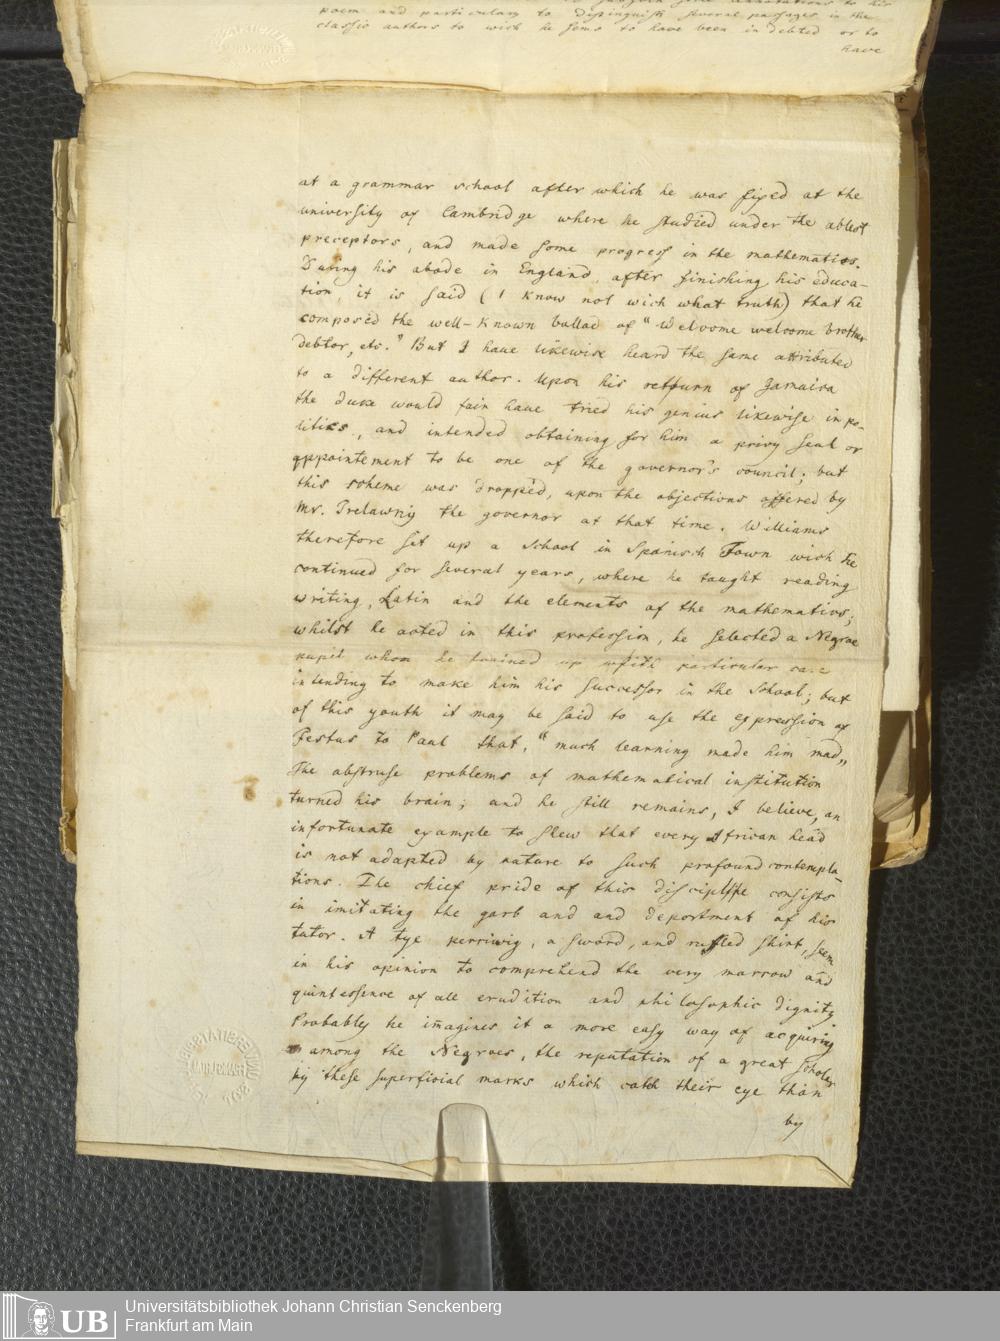 poem and particulary to distinguish several passages in the
classic authors to wich he sems to have been indebted or to
have
at a grammar school after which he was fixed at the
university of Cambridge where he studied under the ablest
preceptors, and made some progress in the mathematics.
During his abode in England, after finishing his educa-
tion, it is said (I know not wich what truth) that he
composed the well-known ballad of "Welcome welcome brother
debtor, etc." But I have likewise heard the same attributed
to a different author. Upon his retpurn of Jamaica
the duke would fain have tried his genius likewise in po-
litiks, and intended obtaining for him a privy seal or
appointement to be one of the governor's council; but
this scheme was dropped, upon the objections offered by
Mr. Trelawny the governor at that time. Williams
therefore set up a school in Spanisch Town wich he
continued for several years, where he taught reading
writing, Latin and the elements of the mathematics;
whilst he acted in this profession, he selected a Negroe
pupil whom he trained up with particular care
intending to make him his successor in the school; but
of this youth it may be said to use the expression of
Festus to Paul that, "much learning made him mad„
The abstruse problems of mathematical institution
turned his brain; and he still remains, I believe, an
infortunate example to shew that every African head
is not adapted by nature to such profound contempla-
tions. The chief pride of this disciple consists
in imitating the garb and and deportment of his
tutor. A tye perriwig, a sword, and ruffled shirt, seem
in his opinion to comprehend the very marrow and
quintessence of all erudition and philosophic dignity
Probably he imagines it a more easy way of acquiring
among the Negroes, the reputation of a great scholar
by these superficial marks which catch their eye than
by
UB
Universitätsbibliothek Johann Christian Senckenberg
Frankfurt am Main